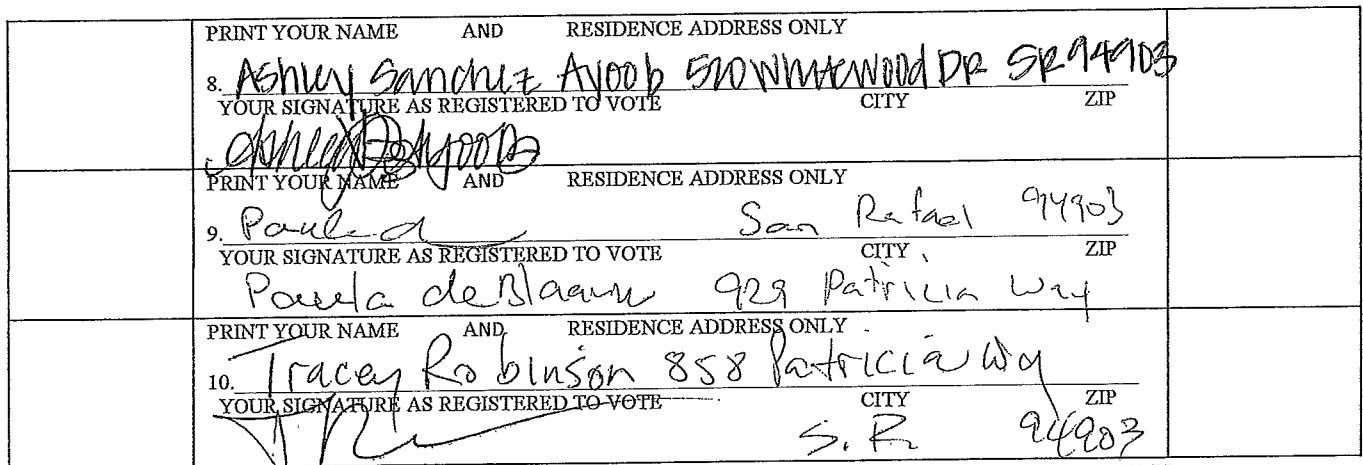 PRINT YOUR NAME AND RESIDENCE ADDRESS ONLY
8. Ashley Sanchez Ayoob 520 Whitewood DR SR 94903
YOUR SIGNATURE AS REGISTERED TO VOTE CITY ZIP
Ashley Ayoob
PRINT YOUR NAME AND RESIDENCE ADDRESS ONLY
9. San Rafael 94903
YOUR SIGNATURE AS REGISTERED TO VOTE CITY ZIP
Paula deBlaauw 929 Patricia Way
PRINT YOUR NAME AND RESIDENCE ADDRESS ONLY
10. Tracey Robinson 858 Patricia Wy
YOUR SIGNATURE AS REGISTERED TO VOTE CITY ZIP
S. R 94903